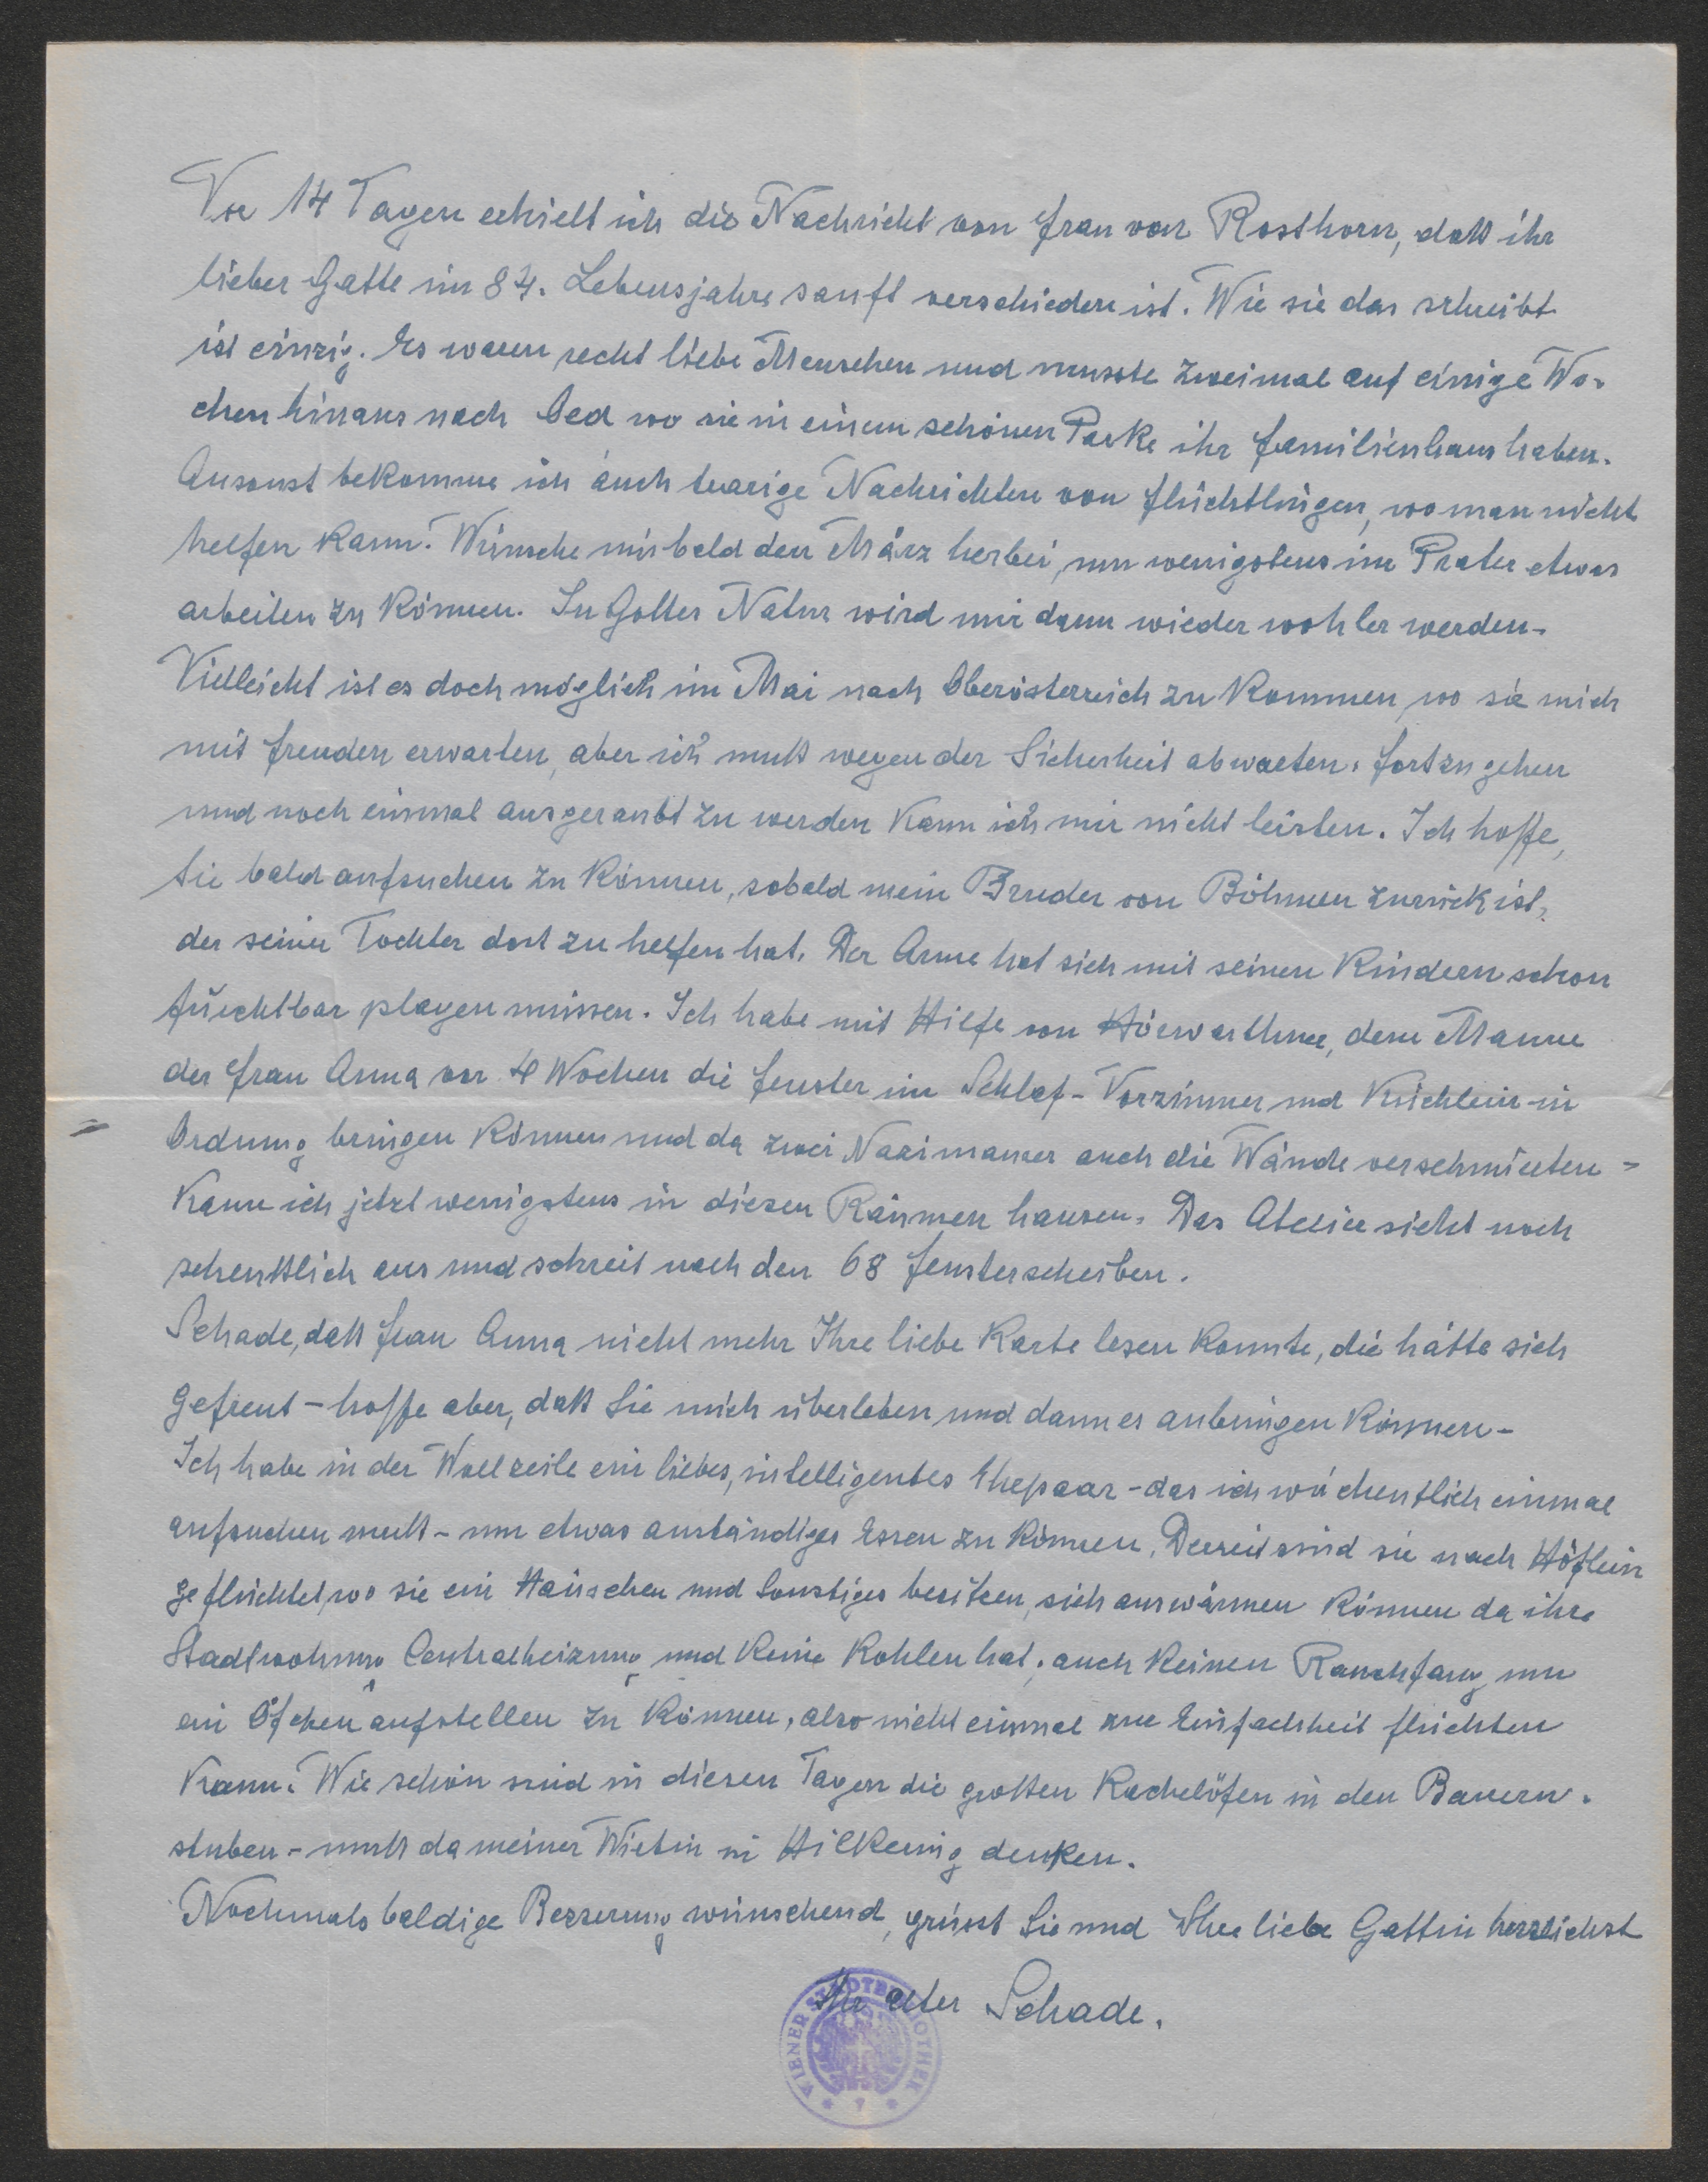 Vor 14 Tagen erhielt ich die Nachricht von Frau von Rosthorn, daß ihr
lieber Gatte im 84. Lebensjahre sanft verschieden ist. Wie sie das schreibt
ist einzig. Es waren recht liebe Menschen und musste zweimal auf einige Wo-
chen hinaus nach Oed wo sie in einem schönen Parke ihr Familienhaus haben.
Ansonst bekomme ich auch traurige Nachrichten von Flüchtlingen, wo man nicht
helfen kann. Wünsche mir bald den März herbei, um wenigstens im Prater etwas
arbeiten zu können. In Gottes Natur wird mir dann wieder wohler werden.
Vielleicht ist es doch möglich im Mai nach Oberösterreich zu kommen, wo sie mich
mit Freuden erwarten, aber ich muß wegen der Sicherheit abwarten. Fortzugehen
und noch einmal ausgeraubt zu werden kann ich mir nicht leisten. Ich hoffe,
Sie bald aufsuchen zu können, sobald mein Bruder von Böhmen zurück ist,
der seiner Tochter dort zu helfen hat. Der Arme hat sich mit seinen Kindern schon
furchtbar plagen müssen. Ich habe mit Hilfe von Hörwarthner, dem Manne
der Frau Anna vor 4 Wochen die Fenster im Schlaf- Vorzimmer und Küchlein in
Ordnung bringen können und da zwei Nazimaurer auch die Wände verschmierten -
kann ich jetzt wenigstens in diesen Räumen hausen. Das Atelier sieht noch
scheußlich aus und schreit nach den 68 Fensterscheiben.
Schade, daß Frau Anna nicht mehr Ihre liebe Karte lesen konnte, die hätte sich
gefreut - hoffe aber, daß Sie mich überleben, und dann es anbringen können -
Ich habe in der Wollzeile ein liebes, intelligentes Ehepaar - das ich wöchentlich einmal
aufsuchen muß - um etwas anständiges Essen zu können. Derzeit sind sie nach Höflein
geflüchtet, wo sie ein Häuschen und Sonstiges besitzen, sich auswärmen können da ihre
Stadtwohnung Centralheizung und keine Kohlen hat, auch keinen Rauchfang um
ein Öfchen aufstellen zu können, also nicht einmal zur Einfachheit flüchten
kann. Wie schön sind in diesen Tagen die großen Kachelöfen in den Bauern-
stuben - muß da meiner Wirtin in Hilkering denken.
Nochmals baldige Besserung wünschend, grüsst Sie und Ihre liebe Gattin herzlichst
Ihr alter Schade.
WIENER STADTBIBLIOTHEK